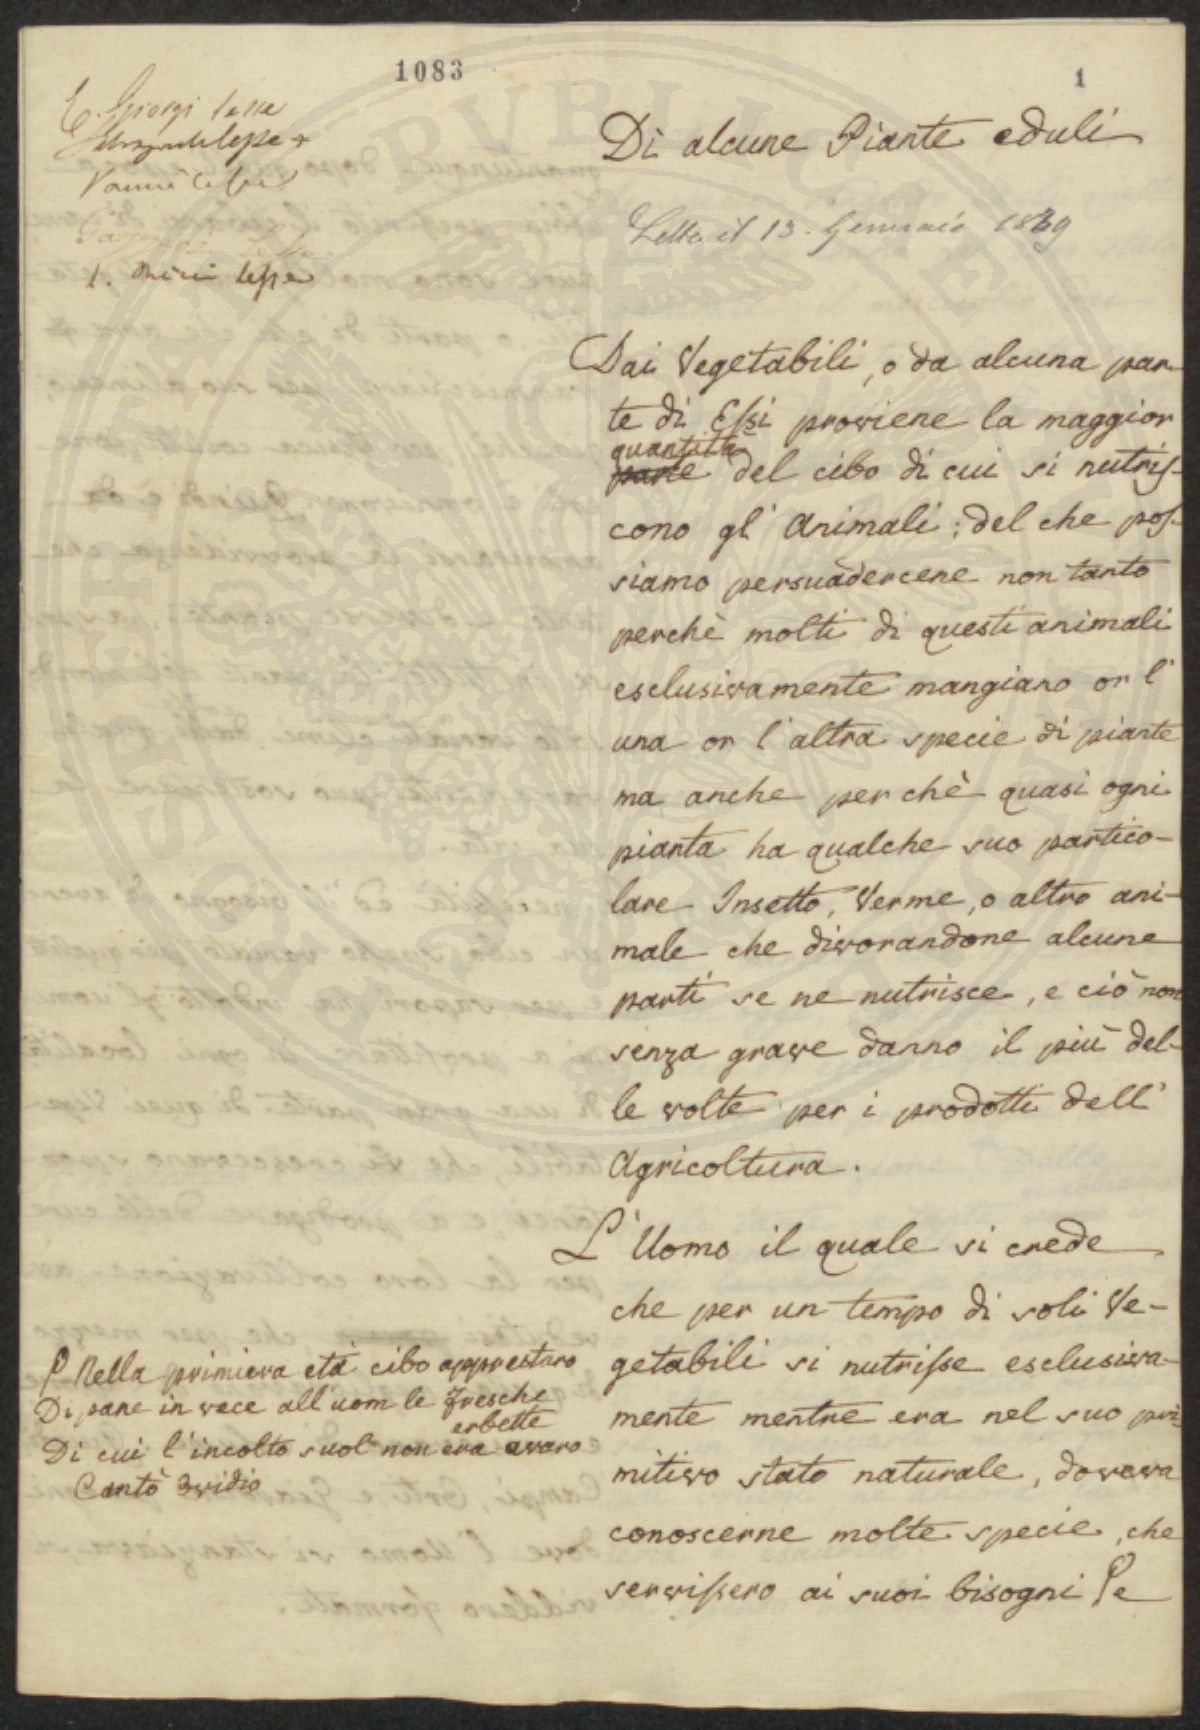 1083
1
C. Giorgi lesse
Vanni lesse
1. Ricci lesse
Di alcune Piante eduli
Letta il 13. Gennaio 1839
Dai Vegetabili, o da alcuna par-
te di Essi proviene la maggior
quantità
parte del cibo di cui si nutris-
cono gl' Animali; del che pos-
siamo persuadercene non tanto
perchè molti di questi animali
esclusivamente mangiano or l'
una or l'altra specie di piante
ma anche perchè quasi ogni
pianta ha qualche suo partico-
lare Insetto, Verme, o altro ani-
male che divorandone alcune
parti se ne nutrisce, e ciò non
senza grave danno il più del-
le volte per i prodotti dell'
Agricoltura.
L'Uomo il quale si crede
che per un tempo di soli Ve-
getabili si nutrisse esclusiva-
mente mentre era nel suo pri-
mitivo stato naturale, doveva
conoscerne molte specie, che
servissero ai suoi bisogni e
Nella primiera età cibo apprestaro
Di pane in vece all'uom le fresche
erbette
Di cui l'incolto suol non era avaro
Cantò Ovidio